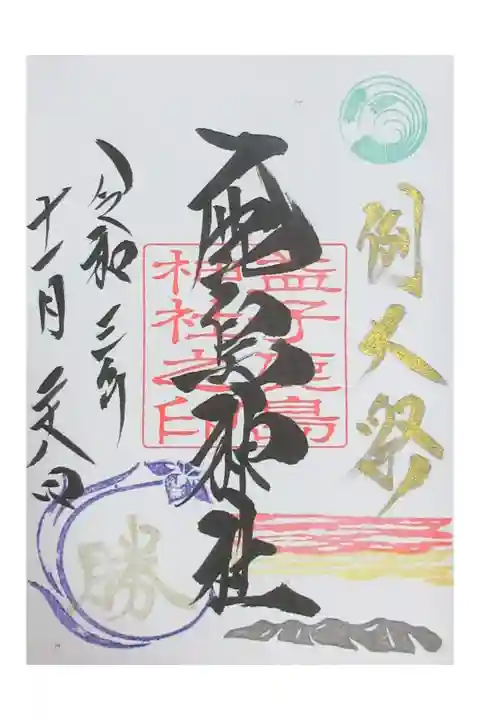 例大祭
鹿島神社
益子鹿島
神社之印
令和三年
十一月廿八日
勝